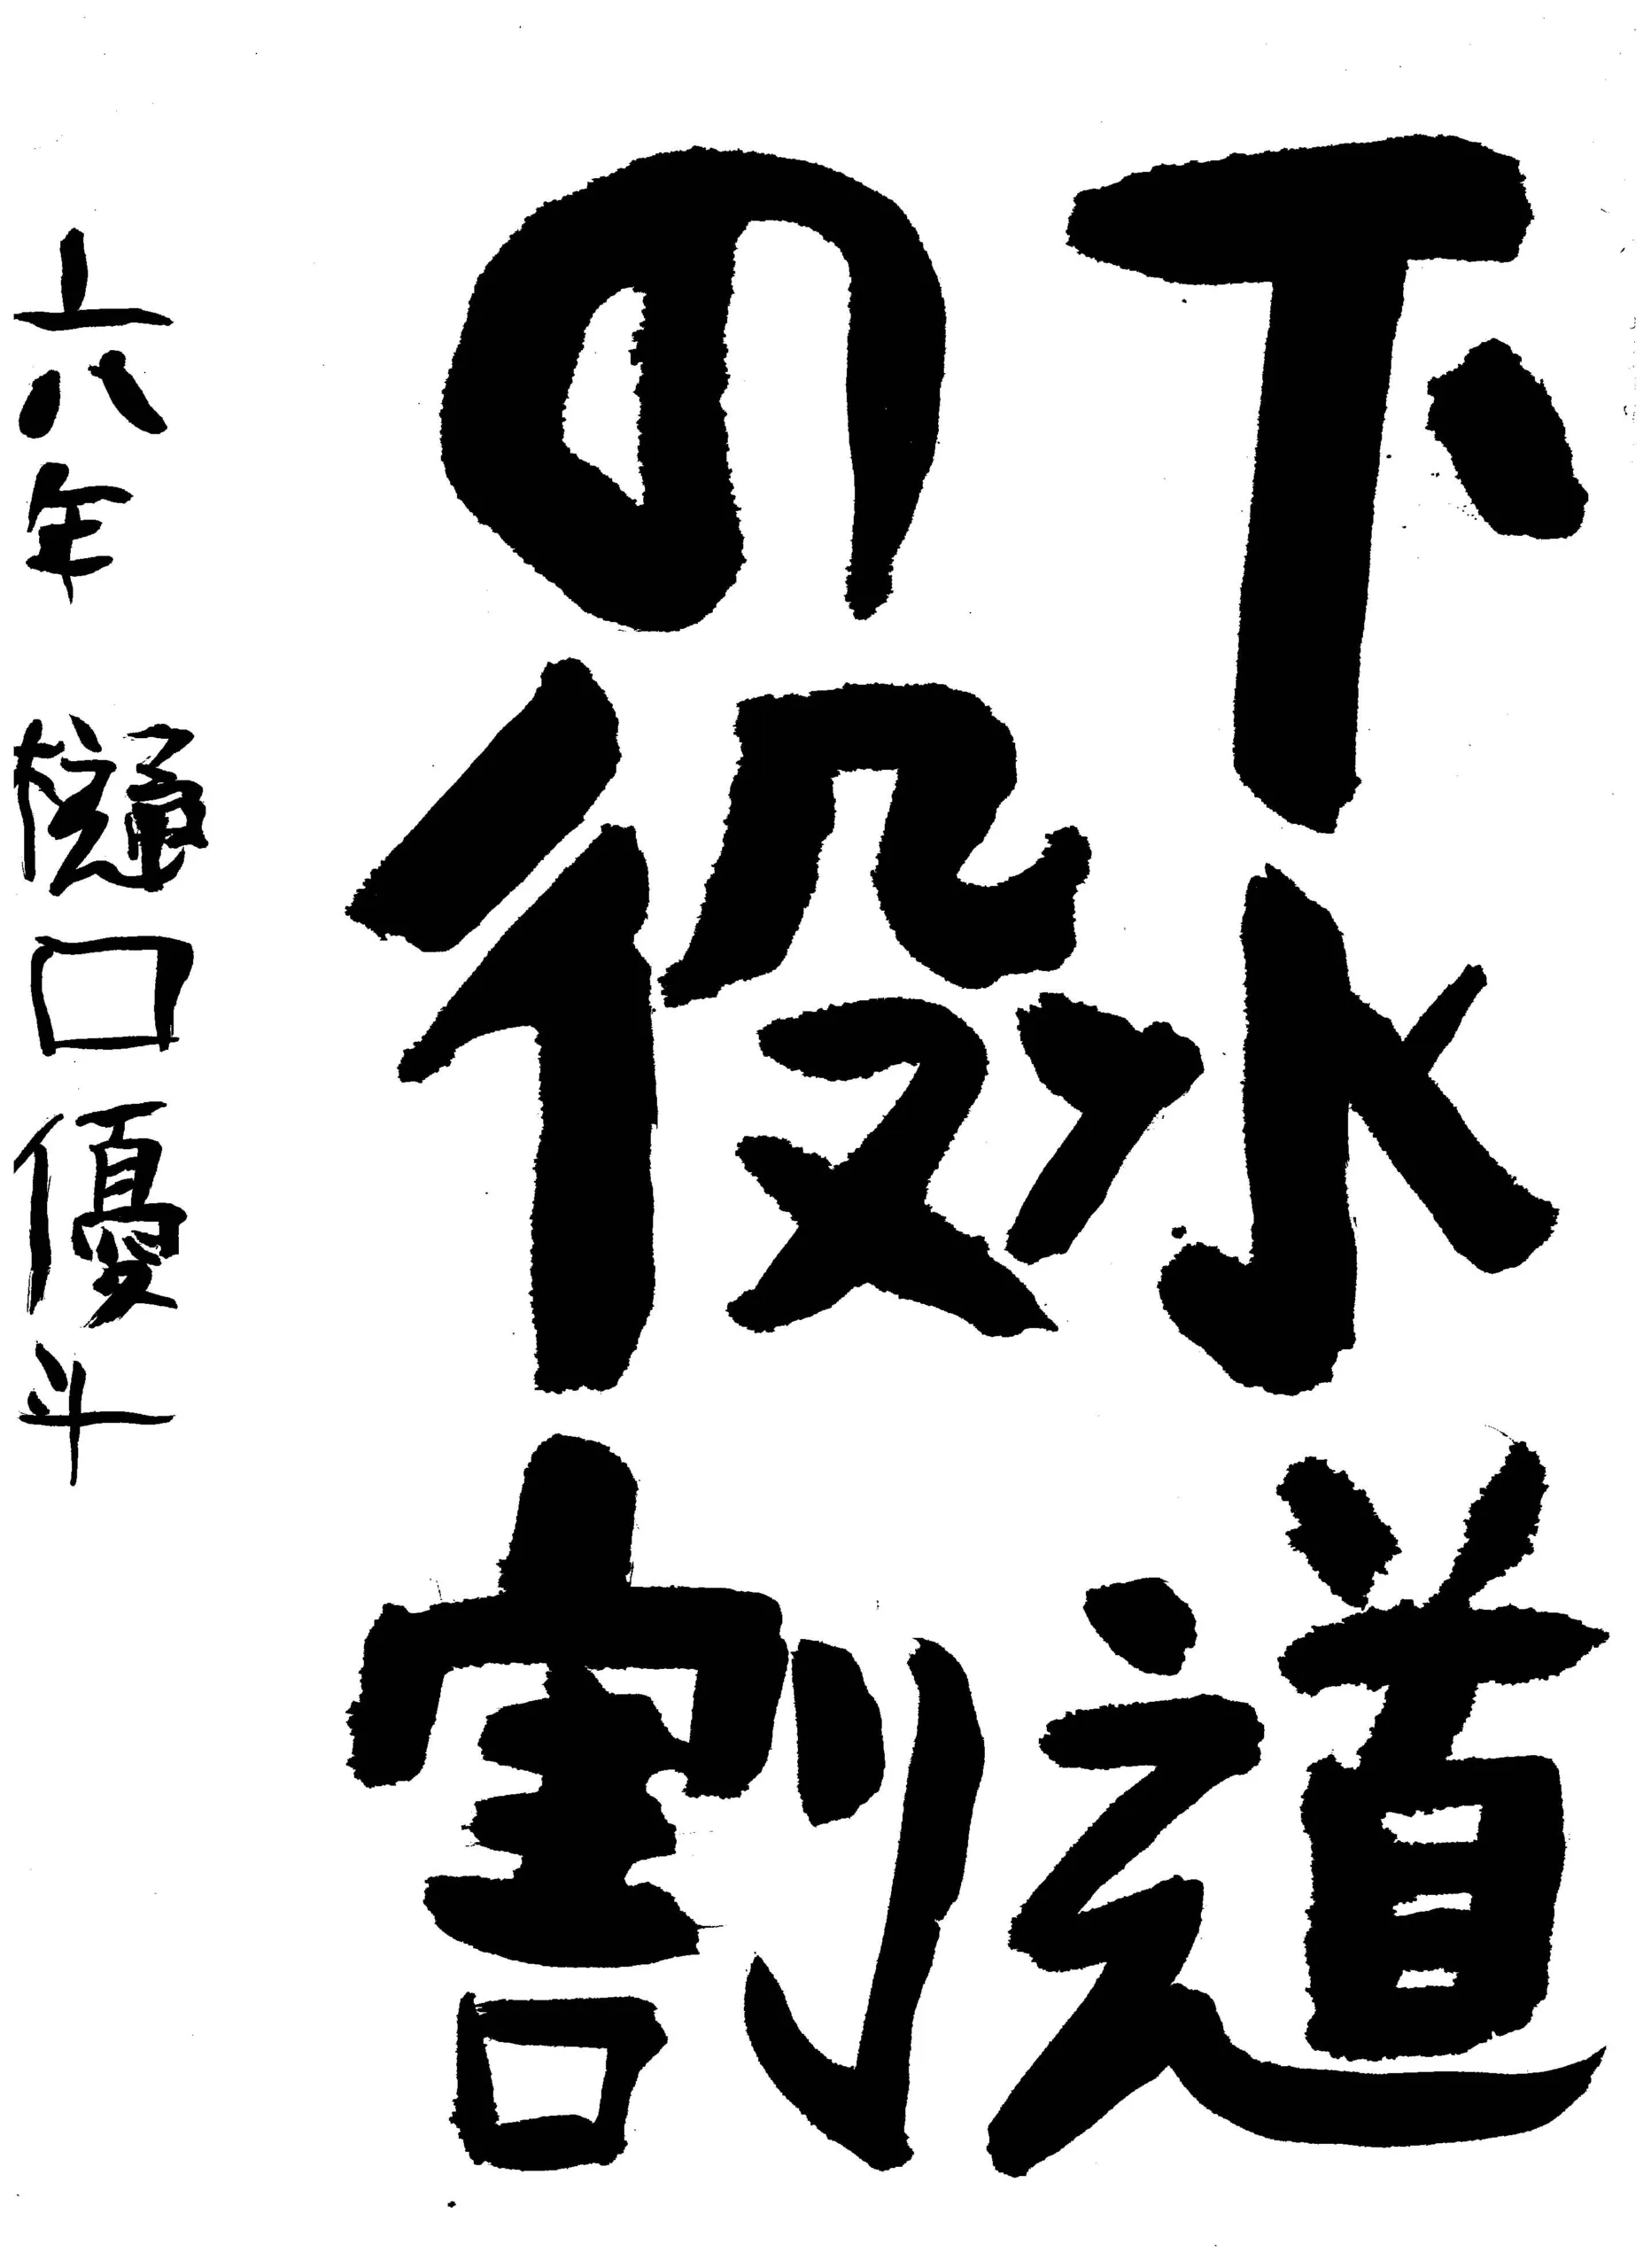 下水道
の役割
六年 樋口優斗